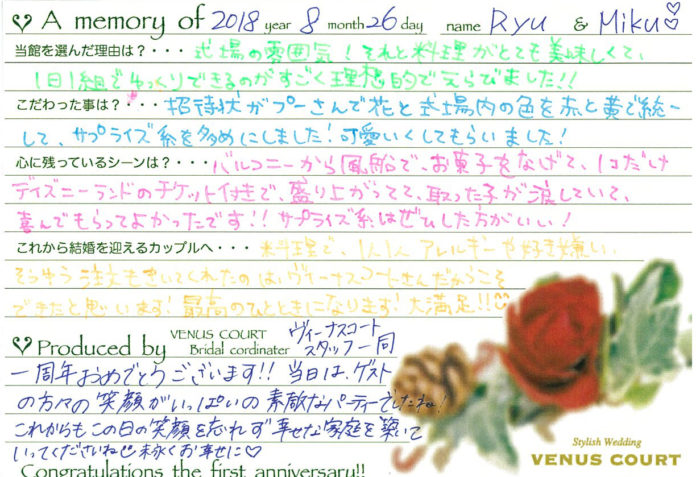 A memory of 2018 year 8 month 26 day name Ryu & Miku
当館を選んだ理由は？・・・式場の雰囲気！それと料理がとても美味しくて、
1日1組でゆっくりできるのがすごく理想的でえらびました!!
こだわった事は？・・・招待状がプーさんで花と式場内の色を赤と黄で統一
して、サプライズ系を多めにしました！可愛いくしてもらいました！
心に残っているシーンは？・・・バルコニーから風船で、お菓子をなげて、1コだけ
ディズニーランドのチケット付きで、盛り上がってて、取った子が涙していて、
喜んでもらってよかったです!!サプライズ系はぜひした方がいい！
これから結婚を迎えるカップルへ・・・料理で、1人1人アレルギーや好き嫌い
そうゆう注文もきいてくれたのは、ヴィーナスコートさんだからこそ
できたと思います！最高のひとときになります！大満足!!
Produced by VENUS COURT Bridal cordinater ヴィーナスコート スタッフ一同
一周年おめでとうございます!! 当日は、ゲスト
の方々の笑顔がいっぱいの素敵なパーティーでしたね！
これからもこの日の笑顔を忘れず幸せな家庭を築いて
いってくださいね 末永くお幸せに♡
Congratulations the first anniversary!!
Stylish Wedding
VENUS COURT